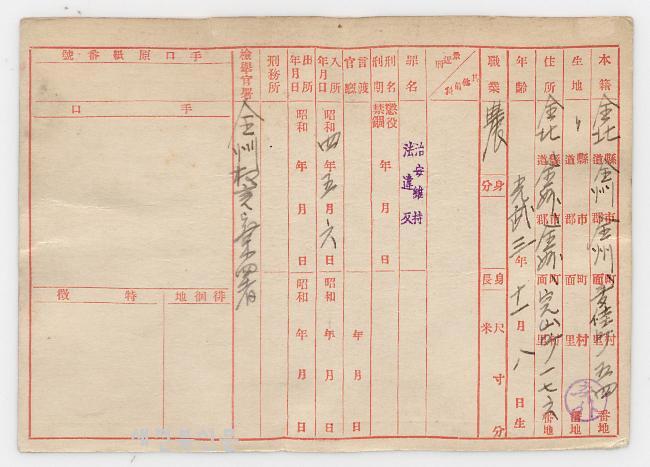 本籍 全北 道縣 全州 郡市 全州 面町 里村 五四 番地
生地 〃 道縣 郡市 面町 里村 番地
住所 全北 道縣 全州 郡市 全州 面町 完山町 里村 一七六 番地
年齡 光武三年十一月八日生
職業 農 身分 身長 尺 米 寸 分
罪名 治安維持法違反
刑名刑期 懲役 禁錮 年 月 日
言渡官廳
入所年月日 昭和四年五月六日 昭和 年 月 日
出所年月日 昭和 年 月 日 昭和 年 月 日
刑務所
檢擧官署 全州
手口原紙番號
手口
特徵
徘徊地